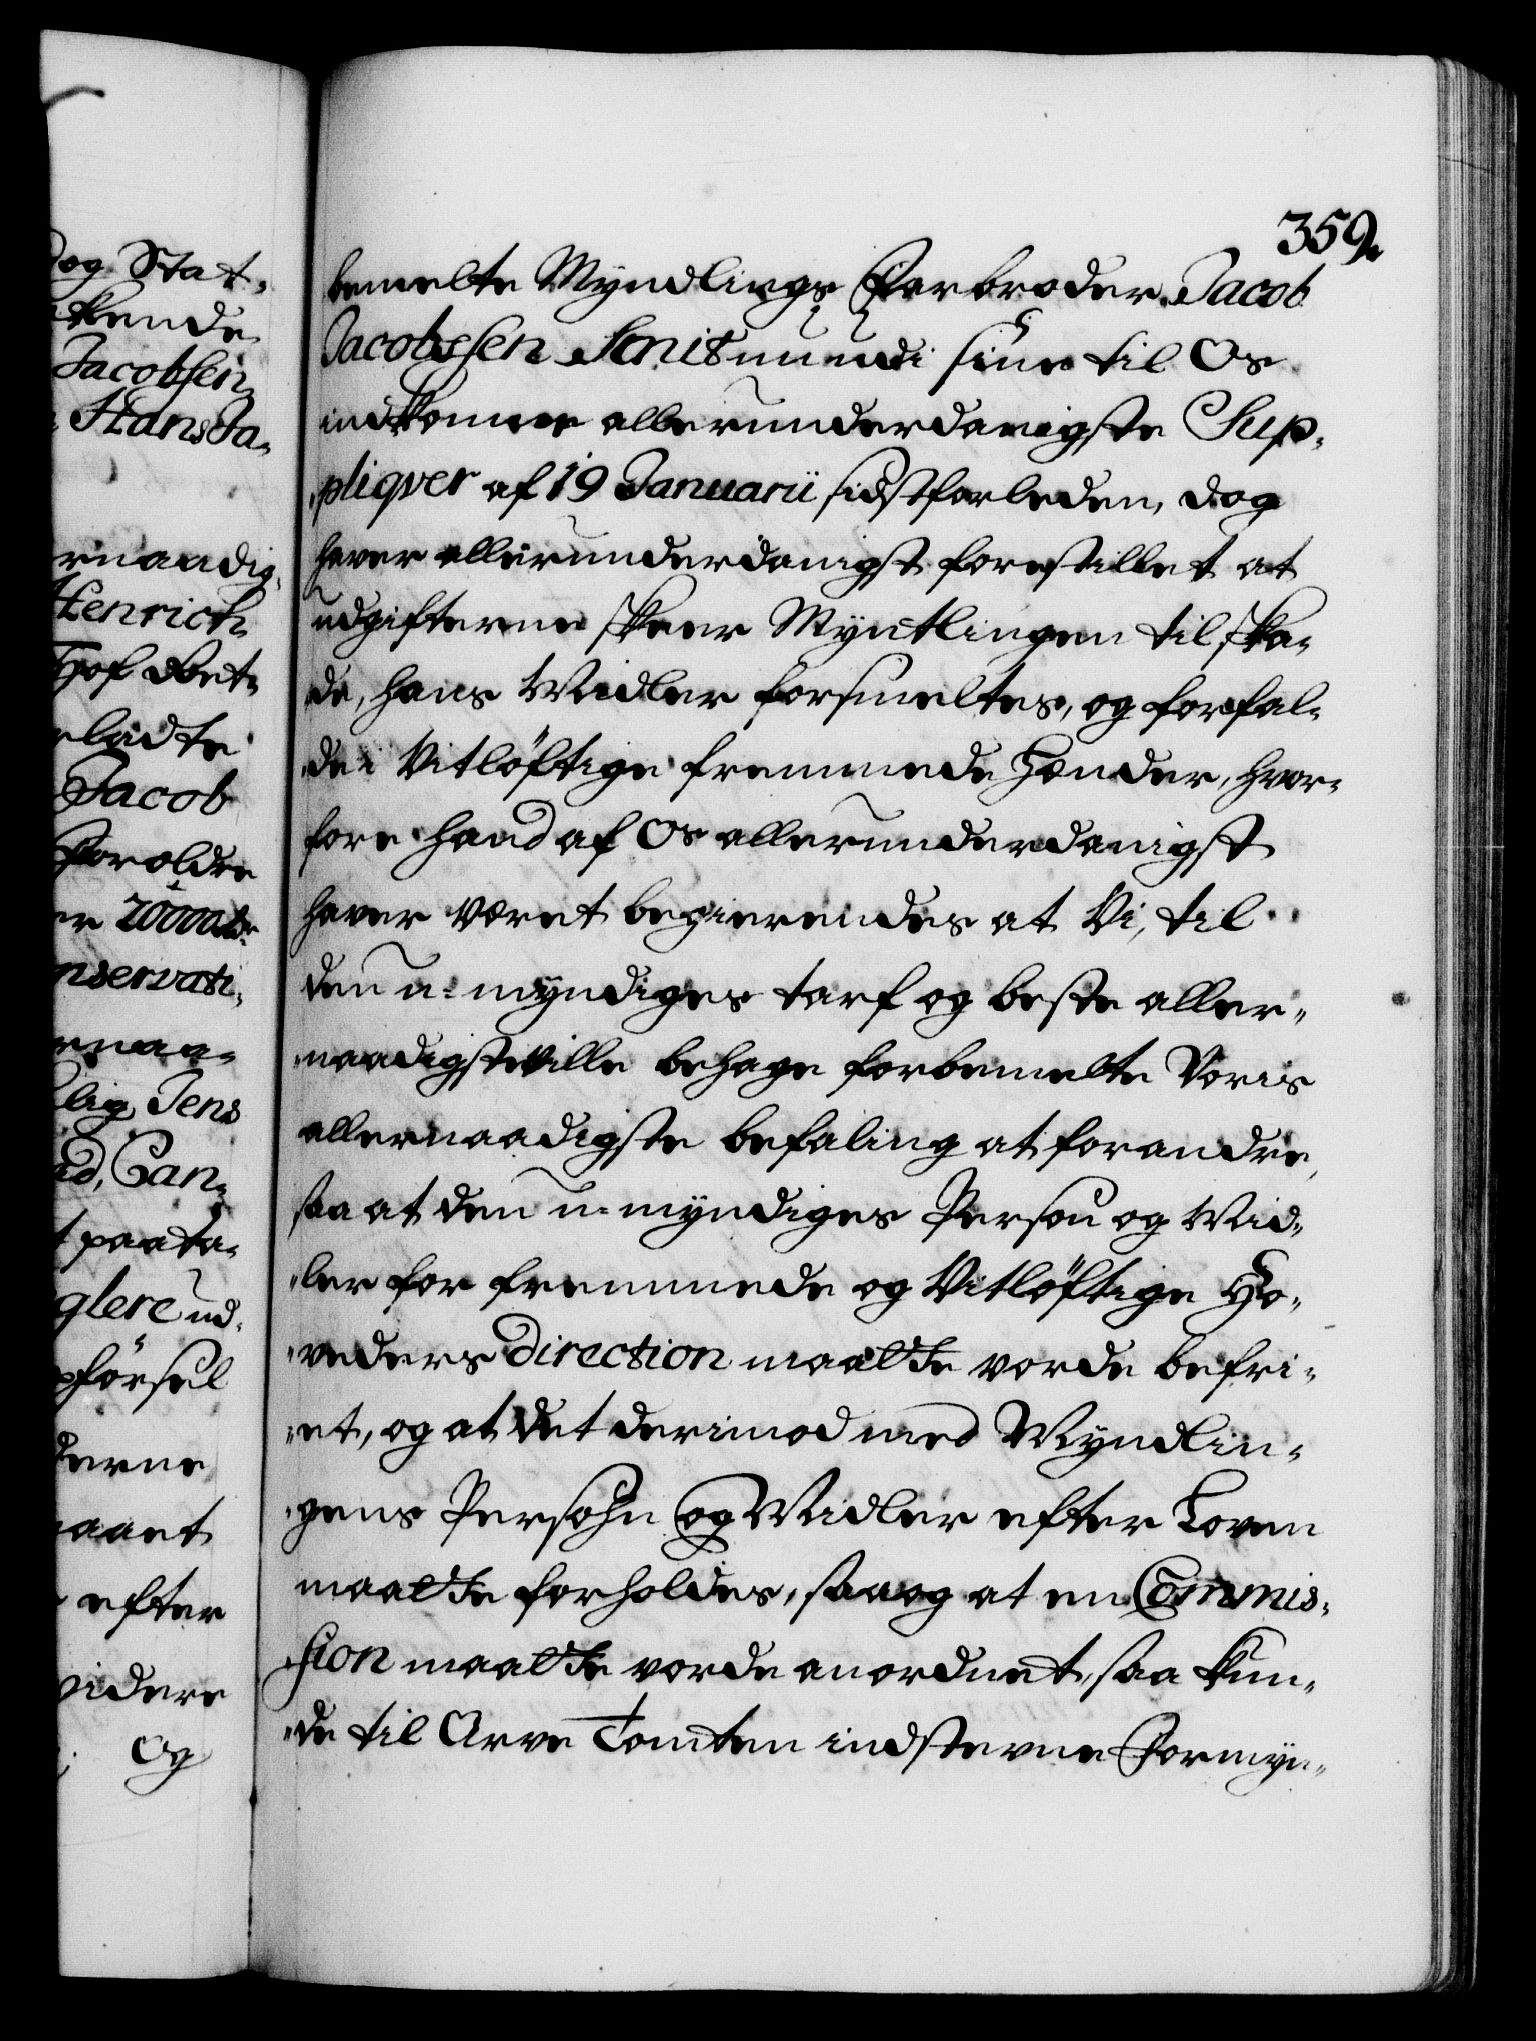 359.
og Stat-
kende
Jacobsen
Hans Ja-
rnaadig-
Henrich
Hof Ret-
ladte
Jacob
Foroldre
er 20000 rdr
nservati-
rnaa-
lig Jens
ed, Can-
t paata-
glere ud-
pförsel
derne
aaet
efter
videre
Og
bemelte Myndlings Farbroder Jacob
Jacobssen Schis mundi sine til Os
indkomne allerunderdanigste Sup-
pliqver af 19 Januarii sidstforleden, dog
haver allerunderdanigst forestillet at
udgifterne skeer Myndtlingen til ska-
de, hans Midler forsmeltes, og forfal-
de i Vitlöftige fremmede Hænder, hvor-
fore hand af Os allerunderdanigst
haver været begierendes at Vi, til
den u-myndiges tarf og beste aller-
naadigst ville behage forbemelte Voris
allernaadigste befaling at forandre,
saa at den u-myndiges Person og Mid-
ler for fremmede og Vitlöftige Ho-
veders Direction maatte vorde befri-
et, og at det derimod med Myndlin-
gens Persohn og Midler efter Loven
maatte forholdes, saa og at en Commis-
sion maatte vorde anordnet, saa kun-
de til Arve Tomten indstevne Formyn-